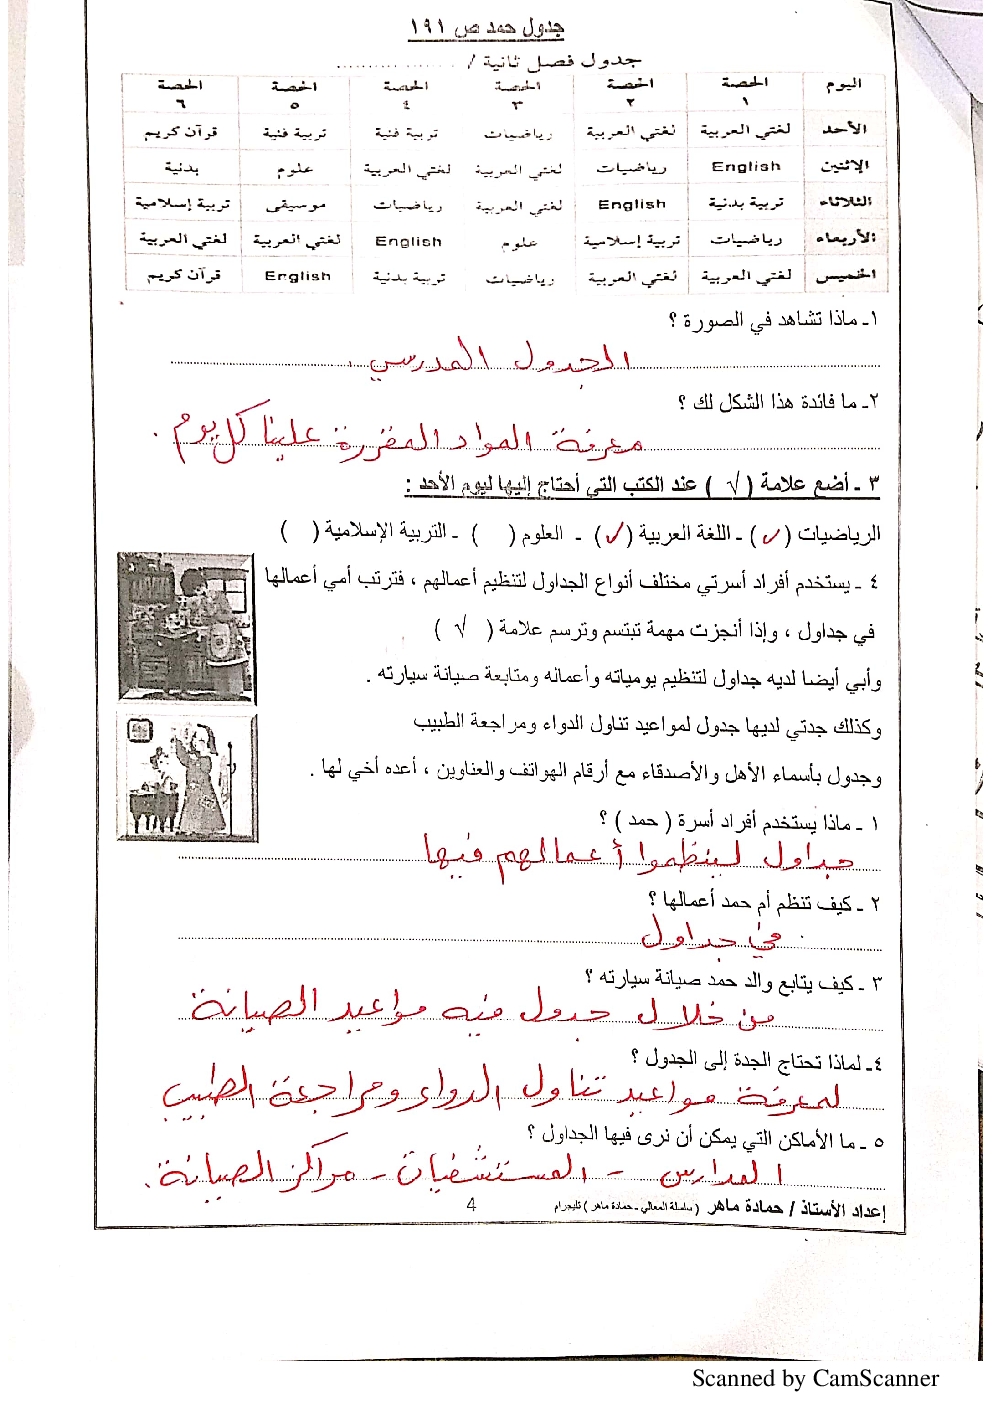 جدول حمد ص ١٩١
جدول فصل ثانية / ................
اليوم الحصة ١ الحصة ٢ الحصة ٣ الحصة ٤ الحصة ٥ الحصة ٦
الأحد لغتي العربية لغتي العربية رياضيات تربية فنية تربية فنية قرآن كريم
الإثنين English رياضيات لغتي العربية لغتي العربية علوم بدنية
الثلاثاء تربية بدنية English لغتي العربية رياضيات موسيقى تربية إسلامية
الأربعاء رياضيات تربية إسلامية علوم English لغتي العربية لغتي العربية
الخميس لغتي العربية لغتي العربية رياضيات تربية بدنية English قرآن كريم
١- ماذا تشاهد في الصورة ؟
الجدول المدرسي .
٢- ما فائدة هذا الشكل لك ؟
معرفة المواد المقررة علينا كل يوم .
٣ - أضع علامة ( √ ) عند الكتب التي أحتاج إليها ليوم الأحد :
الرياضيات ( ✓ ) - اللغة العربية ( ✓ ) - العلوم ( ) - التربية الإسلامية ( )
٤ - يستخدم أفراد أسرتي مختلف أنواع الجداول لتنظيم أعمالهم ، فترتب أمي أعمالها
في جداول ، وإذا أنجزت مهمة تبتسم وترسم علامة ( √ )
وأبي أيضا لديه جداول لتنظيم يومياته وأعماله ومتابعة صيانة سيارته .
وكذلك جدتي لديها جدول لمواعيد تناول الدواء ومراجعة الطبيب
وجدول بأسماء الأهل والأصدقاء مع أرقام الهواتف والعناوين ، أعده أخي لها .
١ - ماذا يستخدم أفراد أسرة ( حمد ) ؟
جداول لينظموا أعمالهم فيها
٢ - كيف تنظم أم حمد أعمالها ؟
في جداول .
٣ - كيف يتابع والد حمد صيانة سيارته ؟
من خلال جدول فيه مواعيد الصيانة
٤- لماذا تحتاج الجدة إلى الجدول ؟
لمعرفة مواعيد تناول الدواء ومراجعة الطبيب
٥ - ما الأماكن التي يمكن أن نرى فيها الجداول ؟
المدارس - المستشفيات - مراكز الصيانة .
إعداد الأستاذ / حمادة ماهر ( سلسلة المعالي - حمادة ماهر ) تليجرام 4
Scanned by CamScanner